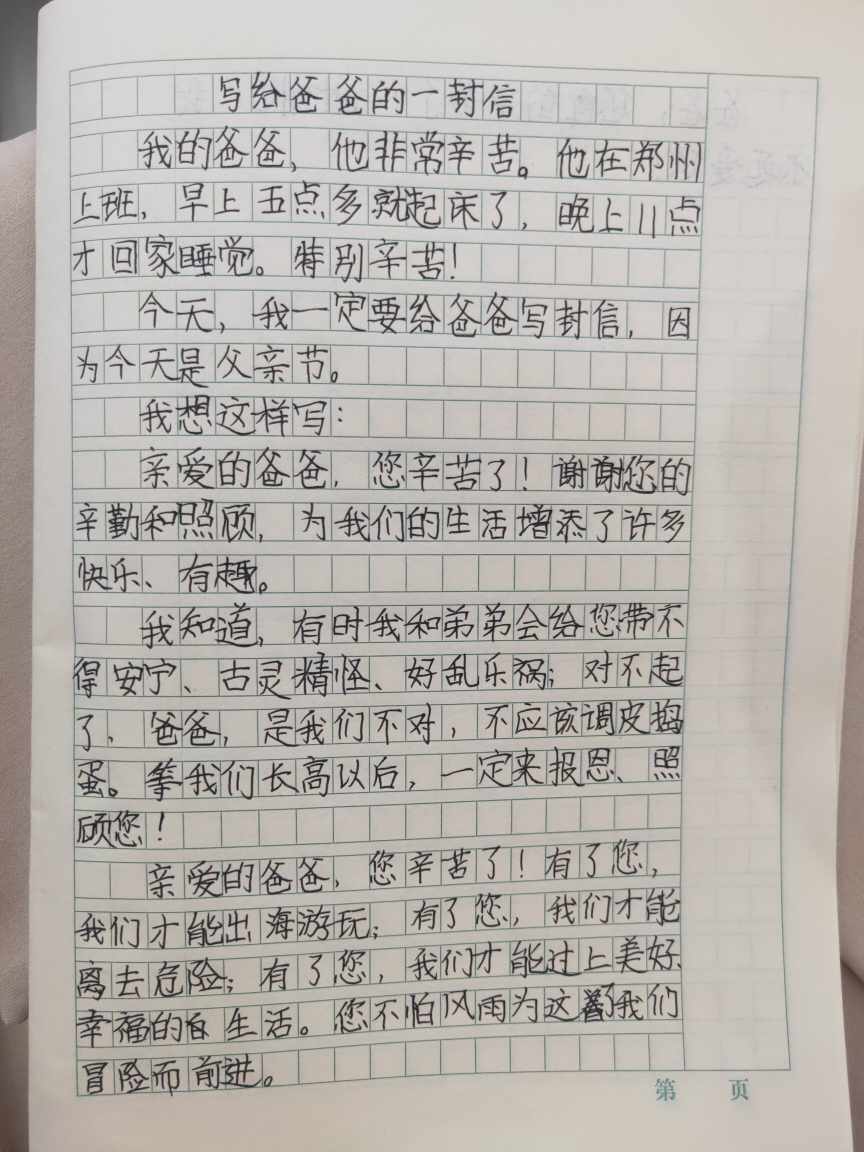 写给爸爸的一封信
我的爸爸，他非常辛苦。他在郑州
上班，早上五点多就起床了，晚上11点
才回家睡觉。特别辛苦！
今天，我一定要给爸爸写封信，因
为今天是父亲节。
我想这样写：
亲爱的爸爸，您辛苦了！谢谢您的
辛勤和照顾，为我们的生活增添了许多
快乐、有趣。
我知道，有时我和弟弟会给您带不
得安宁、古灵精怪、好乱乐祸；对不起
了，爸爸，是我们不对，不应该调皮捣
蛋。等我们长高以后，一定来报恩、照
顾您！
亲爱的爸爸，您辛苦了！有了您，
我们才能出海游玩；有了您，我们才能
离去危险；有了您，我们才能过上美好、
幸福的生活。您不怕风雨为这我们
冒险而前进。
第 页